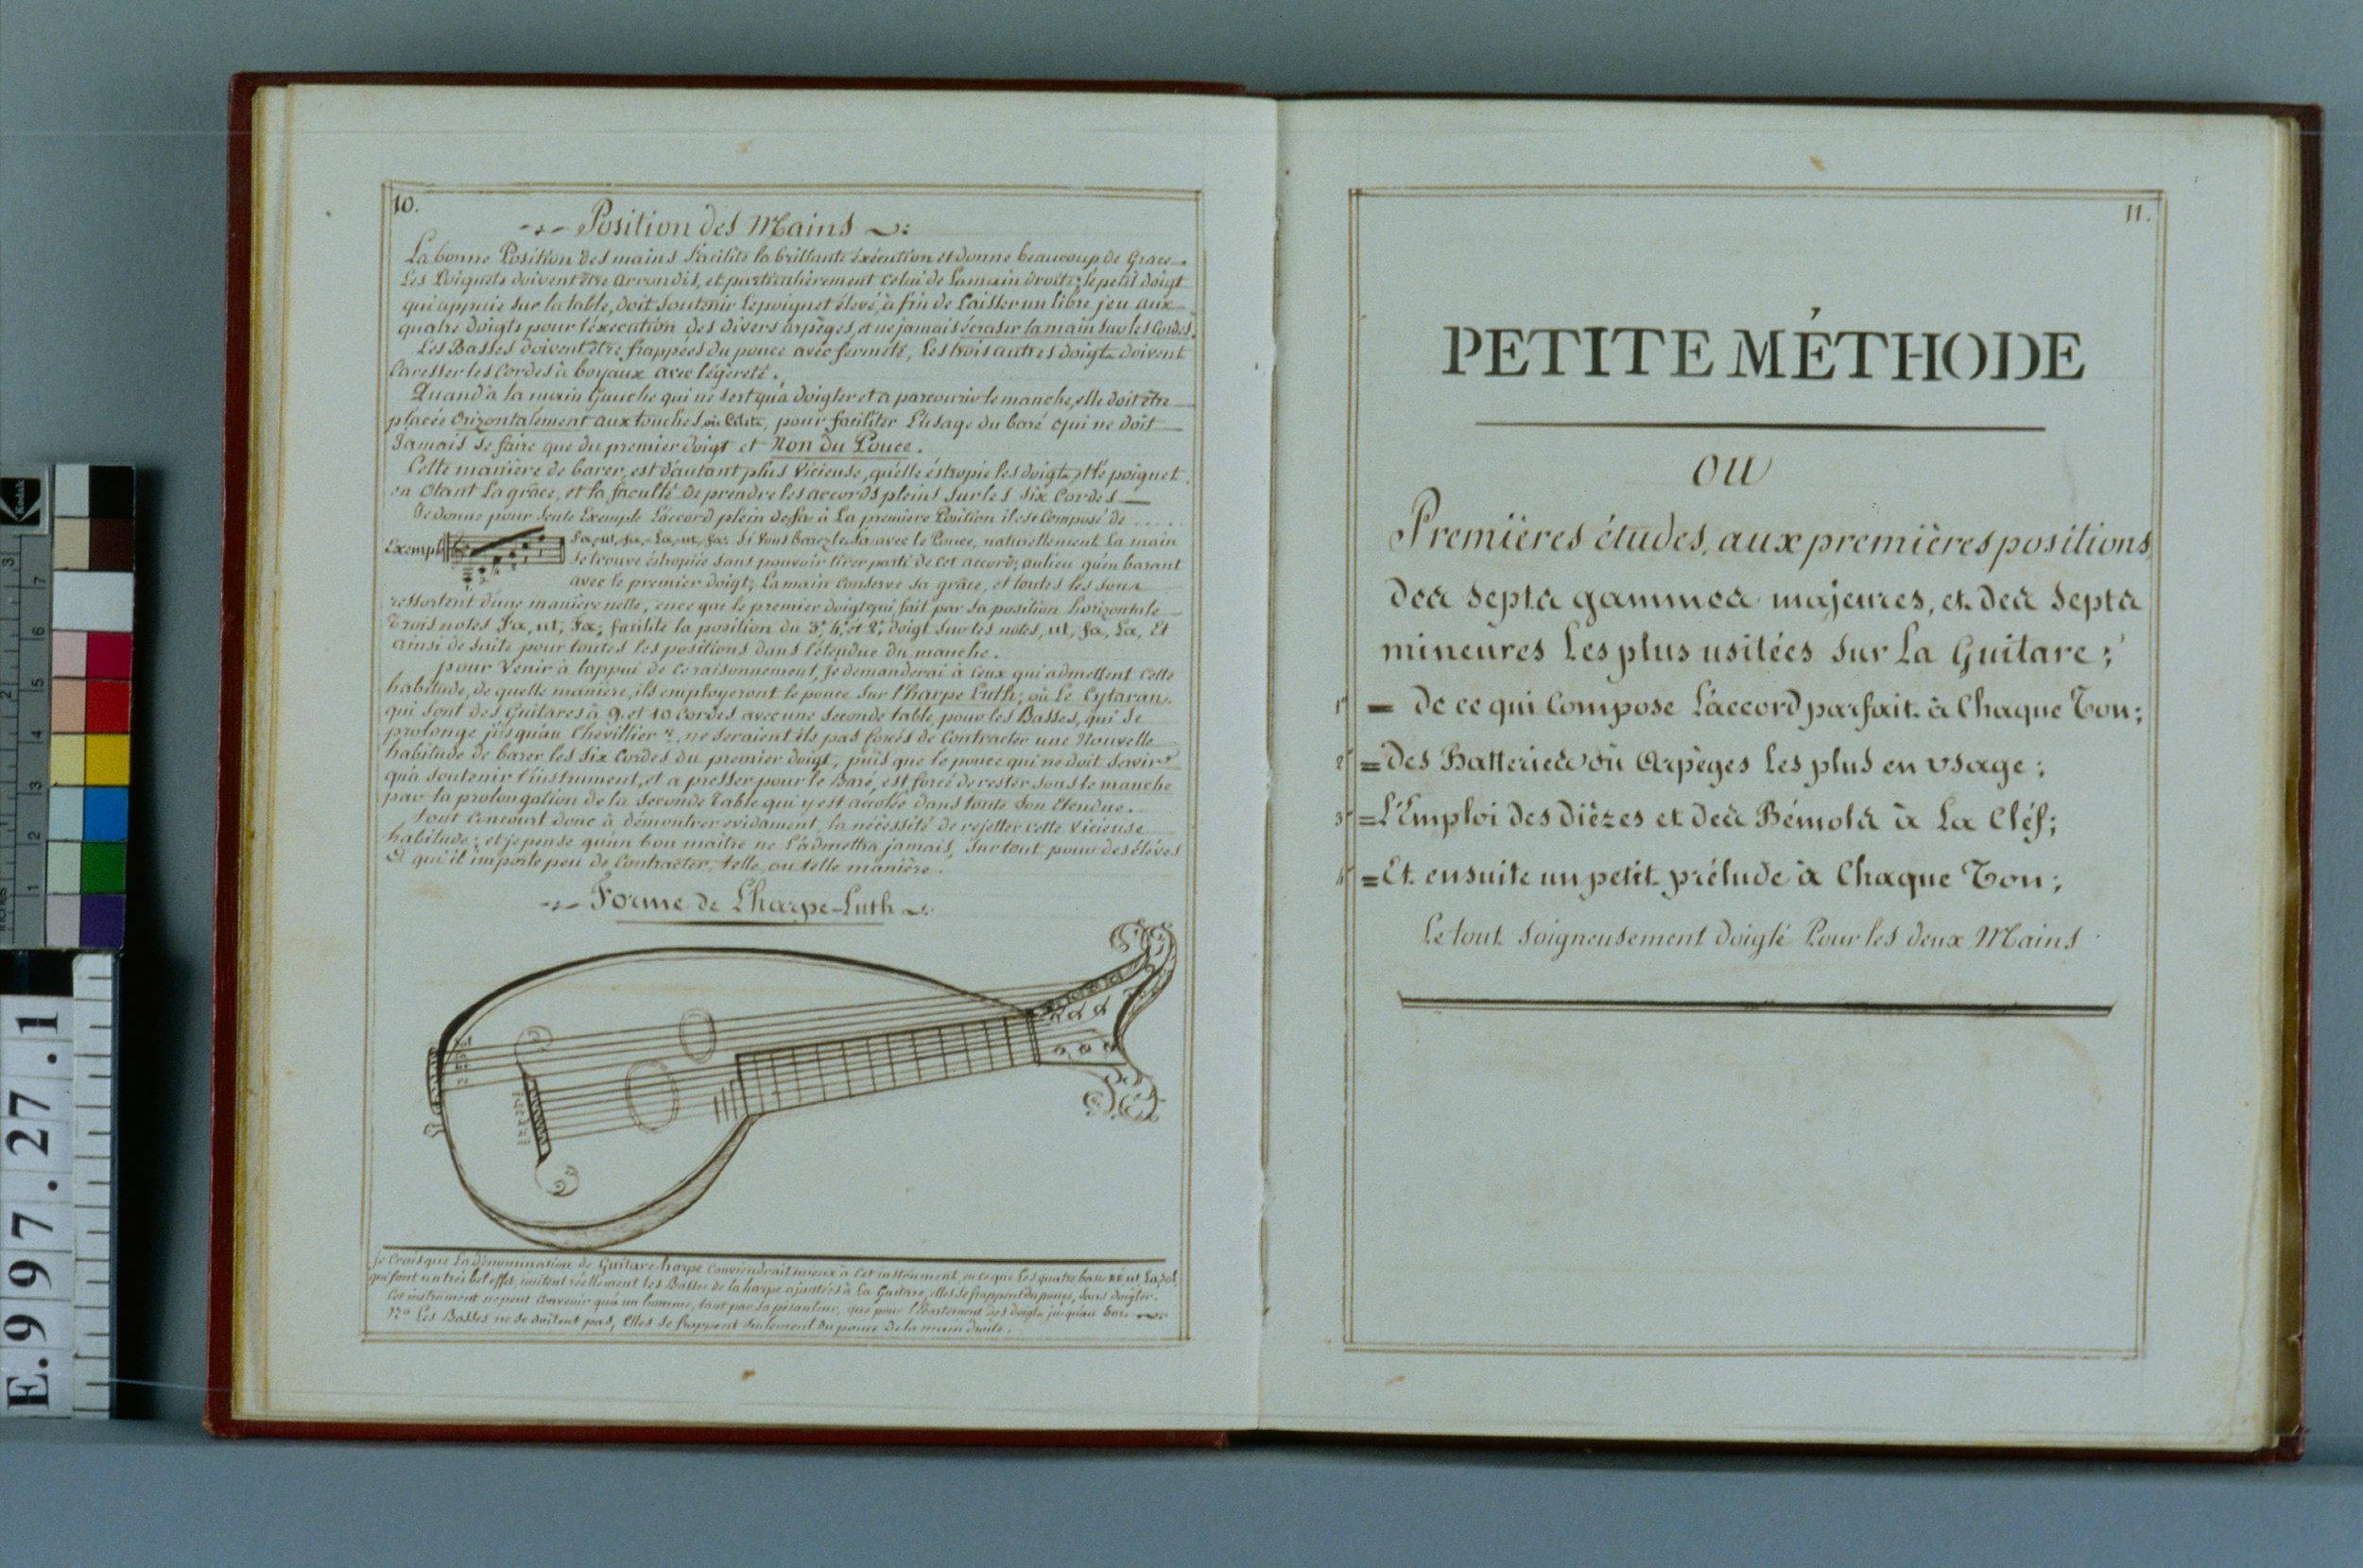 10.
Position des Mains
La bonne Position des mains facilite la brillante éxécution et donne beaucoup de Grace.
Les Poignets doivent être arrondis, et particulièrement celui de La main droite; le petit doigt
qui appuie sur la table, doit soutenir le poignet élevé, à fin de laisser un libre jeu aux
quatre doigts pour l'éxecution des divers arpèges, et ne jamais écraser la main sur les Cordes.
Les Basses doivent être frappées du pouce avec fermeté, les trois autres doigts doivent
Caresser les Cordes à boyaux avec légèreté.
Quand à la main Gauche qui ne sert qu'à doigter et a parcourir le manche, elle doit être
placée Orizontalement aux touches, pour faciliter l'usage du baré qui ne doit
Jamais se faire que du premier doigt et Non du Pouce.
Cette manière de barer, est d'autant plus Vicieuse, qu'elle éstropie les doigts, et le poignet
en Otant La grâce, et la faculté de prendre les accords pleins sur les six Cordes
Je donne pour seule Exemple L'accord plein de fa à La première Position il est Composé de .....
Exemple
fa, ut, fa, La, ut, fa: Si Vous Barez le fa avec le Pouce, naturellement La main
se trouve éstropiée sans pouvoir tirer parti de cet accord; au lieu qu'en barant
avec le premier doigt; La main conserve sa grâce, et toutes les sons
ressortent d'une manière nette, en ce que le premier doigt qui fait par sa position horizontale
trois notes Fa, ut, Fa; facilite la position du 3e, 4e et 2e, doigt sur les notes, ut, fa, La, Et
ainsi de suite pour toutes les positions dans l'étendue du manche.
pour Venir à l'appui de ce raisonnement, Je demanderai à Ceux qui admettent cette
habitude, de quelle manière, ils employeront le pouce sur l'harpe Luth; où Le Cytaran.
qui sont des Guitares à 9. et 10 Cordes avec une seconde table, pour les Basses, qui se
prolonge jusqu'au Chevillier, ne seraient ils pas forcés de Contracter une Nouvelle
habitude de barer les six Cordes du premier doigt, puis que le pouce qui ne doit servir
qu'à soutenir l'instrument, et a presser pour le Baré, est forcé de rester sous le manche
par la prolongation de la seconde Table qui y est accolée dans toute son Etendue.
tout Concourt donc à démontrer evidament, la nécessité de rejetter cette Vicieuse
habitude; et je pense qu'un bon maitre ne L'admettra jamais, sur tout pour des éléves
à qui il importe peu de Contracter, telle, ou telle manière.
Forme de L'harpe-Luth
Je Crois que La dénomination de Guitare-harpe Conviendrait mieux à Cet instrument, en ce que Les quatre basses RE, ut, La, sol,
qui font un très bel effet, imitent réellement les Basses de la harpe ajoutées à La Guitare, elles se frappent du pouce, sans doigter.
Cet instrument ne peut Convenir qu'à un homme, tant par sa pésanteur, que pour l'Ecartement des doigts
Na Les Basses ne se doitent pas, Elles se frappent seulement du pouce de la main droite.
11.
PETITE MÉTHODE
OU
Premières études, aux premières positions,
des septs gammes majeures, et des septs
mineures Les plus usitées sur La Guitare;
1° = de ce qui Compose L'accord parfait à Chaque Ton;
2° = Des Batteries où Arpèges Les plus en usage;
3° = L'Emploi des dièzes et des Bémols à La Cléf;
4° = Et ensuite un petit prélude à Chaque Ton;
Le tout soigneusement doigté Pour les deux Mains
Kodak
inches
1 2 3 4 5 6 7
E.997.27.1